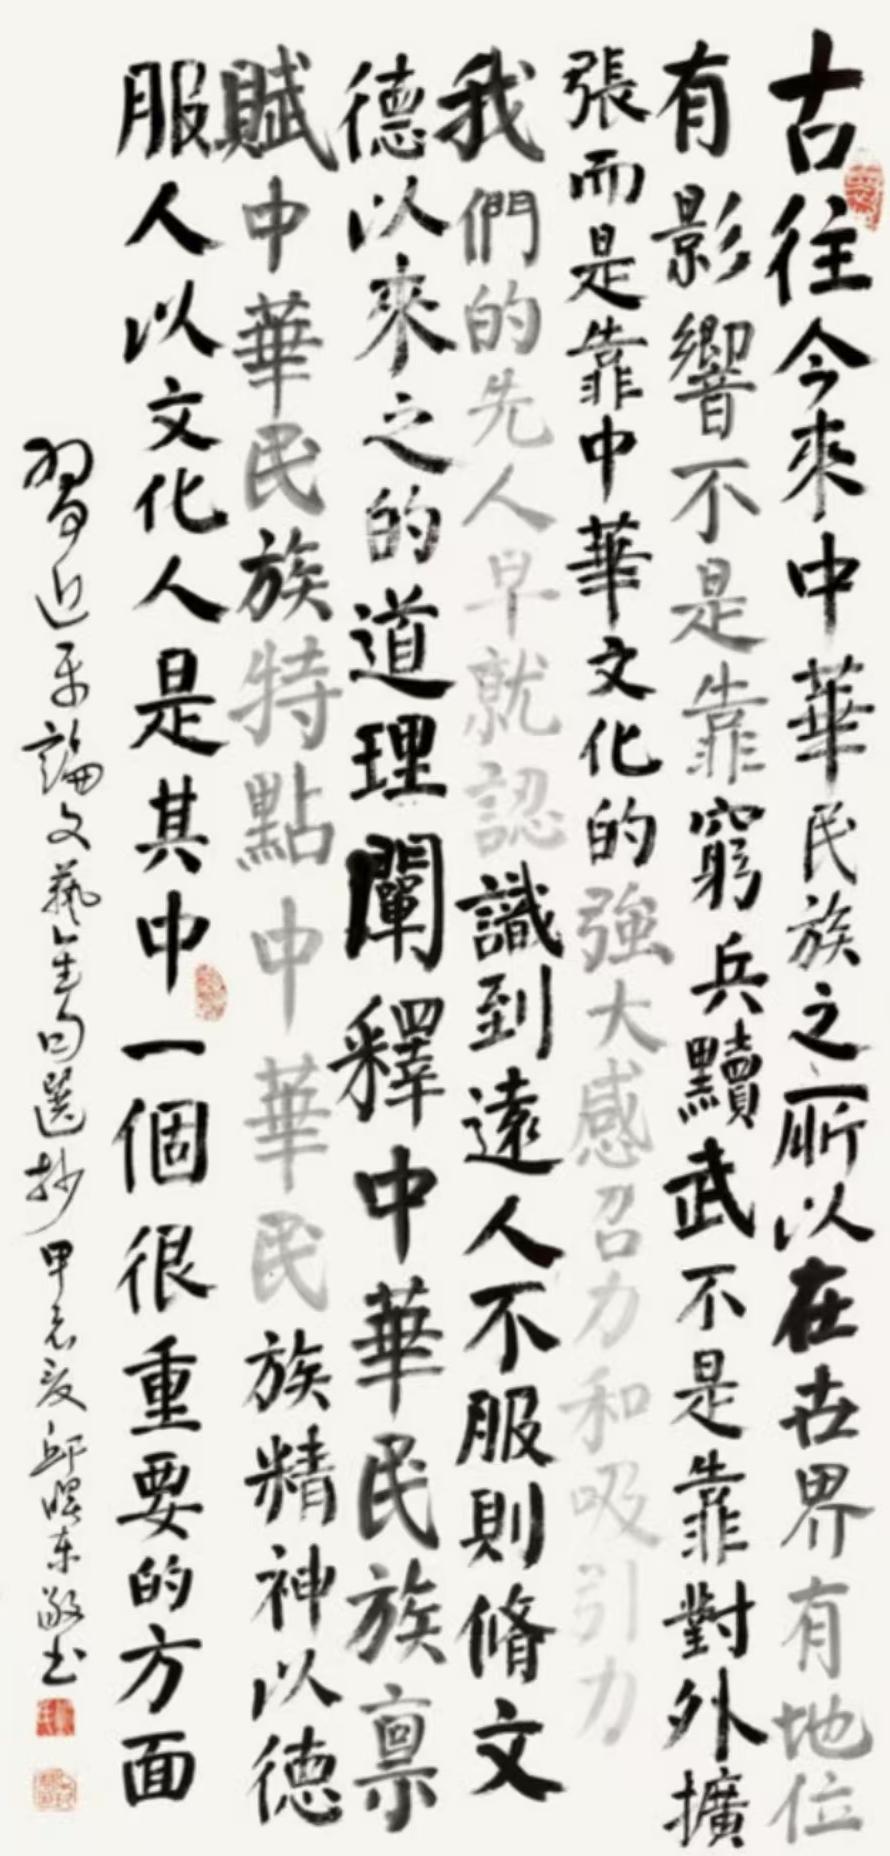 古往今來中華民族之所以在世界有地位
有影響不是靠窮兵黷武不是靠對外擴
張而是靠中華文化的強大感召力和吸引力
我們的先人早就認識到遠人不服則脩文
德以來之的道理闡釋中華民族禀
賦中華民族特點中華民族精神以德
服人以文化人是其中一個很重要的方面
習近平論文藝金句選抄甲辰夏邱曙东敬书